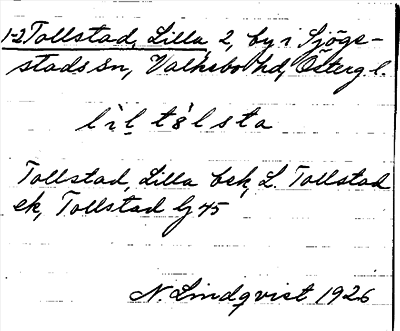 1-2 Tollstad, Lilla 2, by i Sjöge-
stads sn, Valkebo hd, Österg l.
Tollstad, Lilla bek, L. Tollstad
ek, Tollstad Gj 45
N. Lindqvist 1926